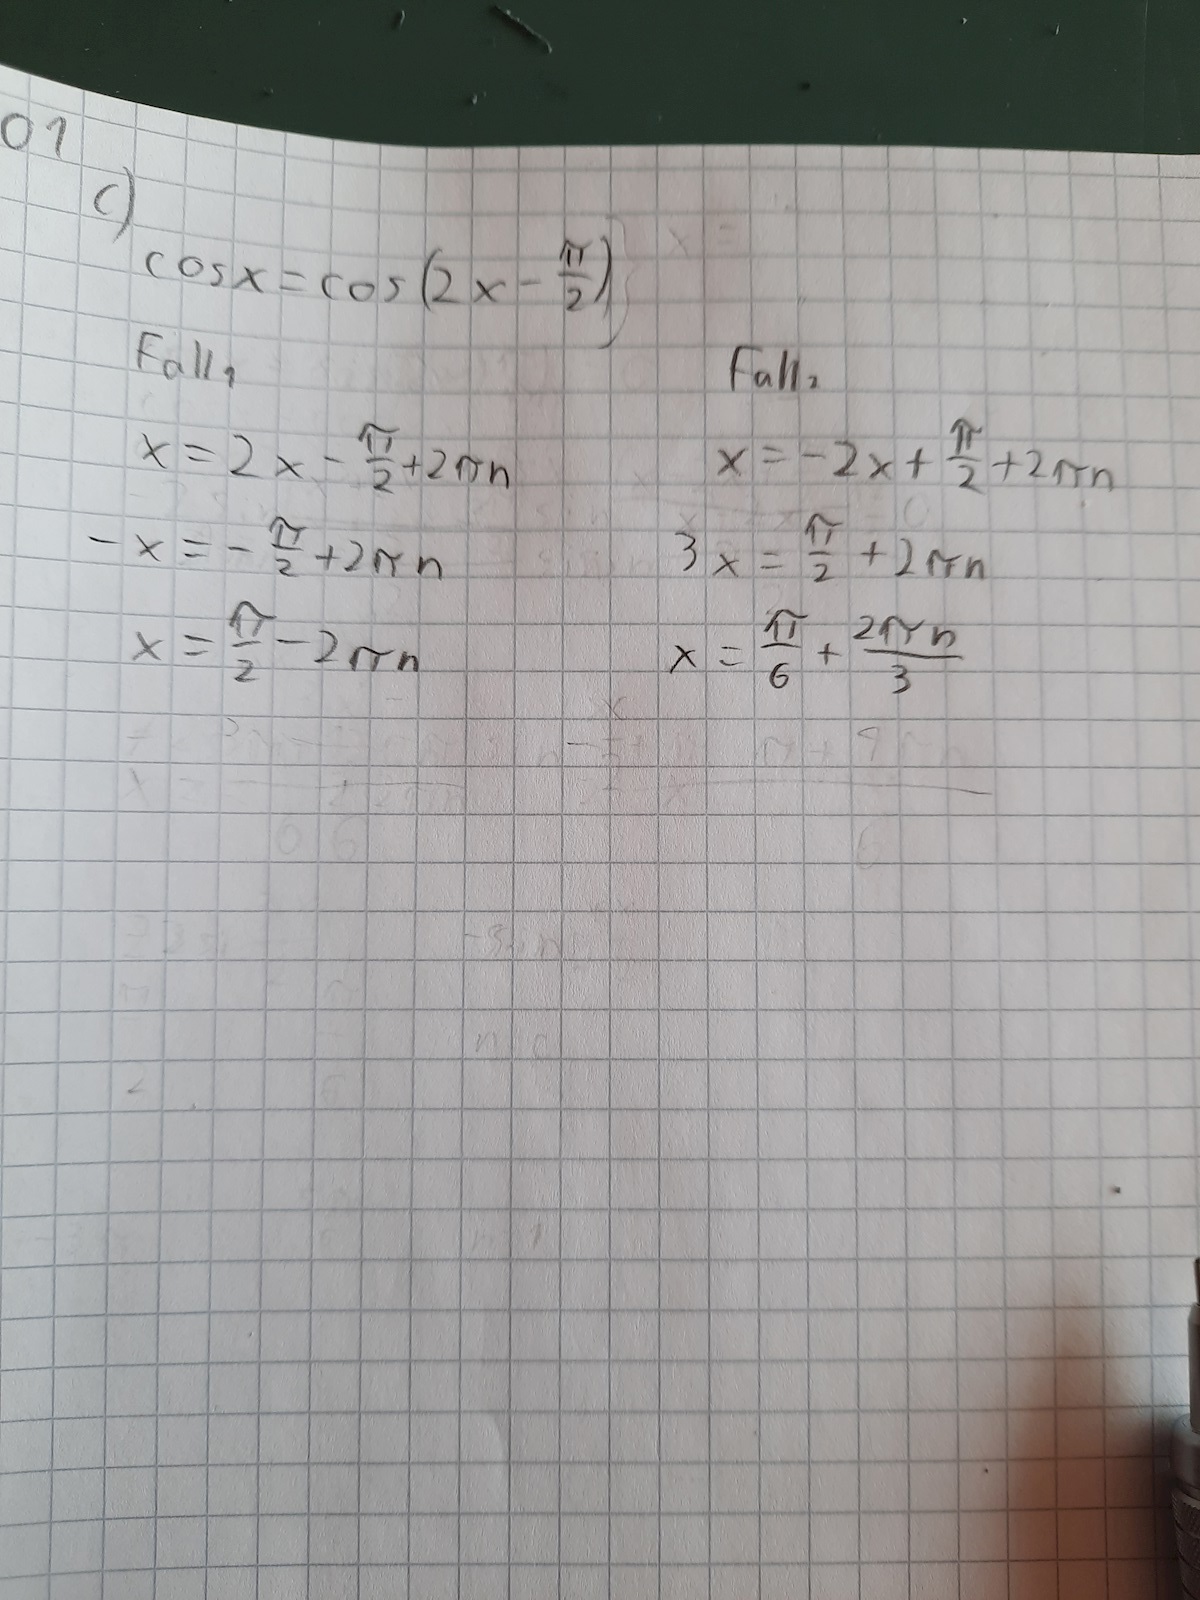 01
c)
cosx = cos(2x - π/2)
Fall₁
x = 2x - π/2 + 2πn
-x = -π/2 + 2πn
x = π/2 - 2πn
Fall₂
x = -2x + π/2 + 2πn
3x = π/2 + 2πn
x = π/6 + 2πn/3